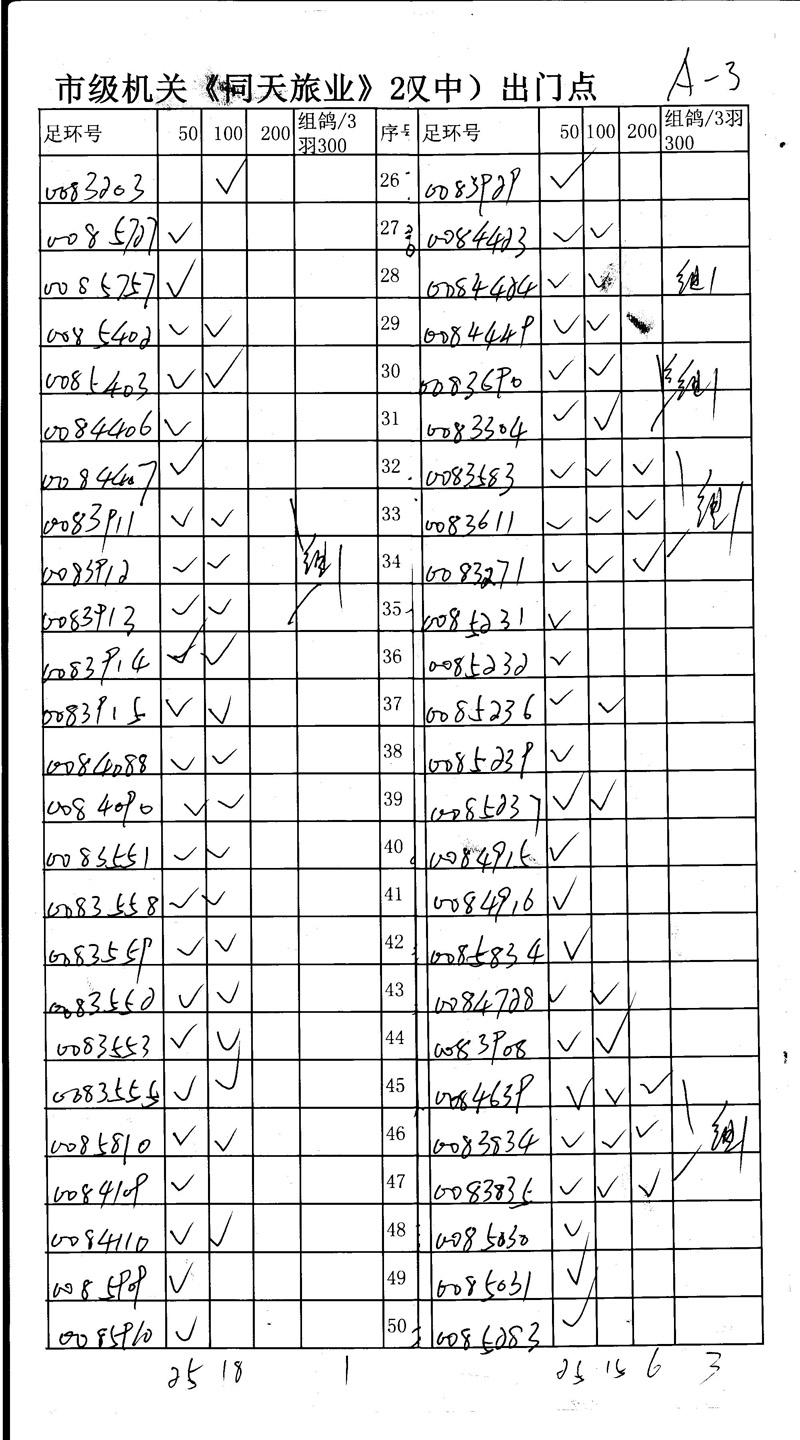 A-3
市级机关《同天旅业》2(汉中）出门点
足环号 50 100 200 组鸽/3羽300 序号 足环号 50 100 200 组鸽/3羽300
0083203 ✓ 26 0083929 ✓
0085727 ✓ 27 0084423 ✓ ✓
0085757 ✓ 28 0084424 ✓ ✓ 组1
0085402 ✓ ✓ 29 0084449 ✓ ✓
0085403 ✓ ✓ 30 0083690 ✓ ✓ 组1
0084406 ✓ 31 0083304 ✓ ✓
0084407 ✓ 32 0083583 ✓ ✓ ✓
0083911 ✓ ✓ 33 0083611 ✓ ✓ ✓ 组1
0083912 ✓ ✓ 组1 34 0083271 ✓ ✓ ✓
0083913 ✓ ✓ 35 0085231 ✓
0083914 ✓ ✓ 36 0085232 ✓
0083915 ✓ ✓ 37 0085236 ✓ ✓
0084088 ✓ ✓ 38 0085239 ✓
0084090 ✓ ✓ 39 0085237 ✓ ✓
0083551 ✓ ✓ 40 0084915 ✓
0083558 ✓ ✓ 41 0084916 ✓
0083559 ✓ ✓ 42 0085834 ✓
0083552 ✓ ✓ 43 0084728 ✓ ✓
0083553 ✓ ✓ 44 0083908 ✓ ✓
0083555 ✓ ✓ 45 0084639 ✓ ✓ ✓
0085810 ✓ ✓ 46 0083834 ✓ ✓ ✓ 组1
0084109 ✓ 47 0083835 ✓ ✓ ✓
0084110 ✓ ✓ 48 0085030 ✓
0085909 ✓ 49 0085031 ✓
0085910 ✓ 50 0085283 ✓
25 18 1 25 15 6 3